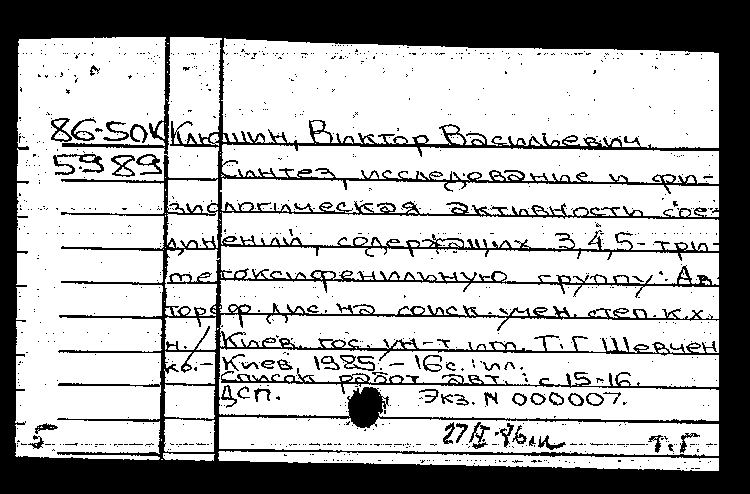 86-50К Клюшин, Виктор Васильевич.
5989 Синтез, исследование и фи-
зиологическая активности сое-
динений, содержащих 3,4,5-три-
метоксифенильную группу: Ав-
тореф. дис. на соиск. учен. степ. к.х.
н. / Киев. гос. ин-т им. Т.Г Шевчен
ко.- Киев, 1985. - 16с.: ил.
Список работ авт.: с 15-16.
ДСП. Экз. N 000007.
5 Т.Г